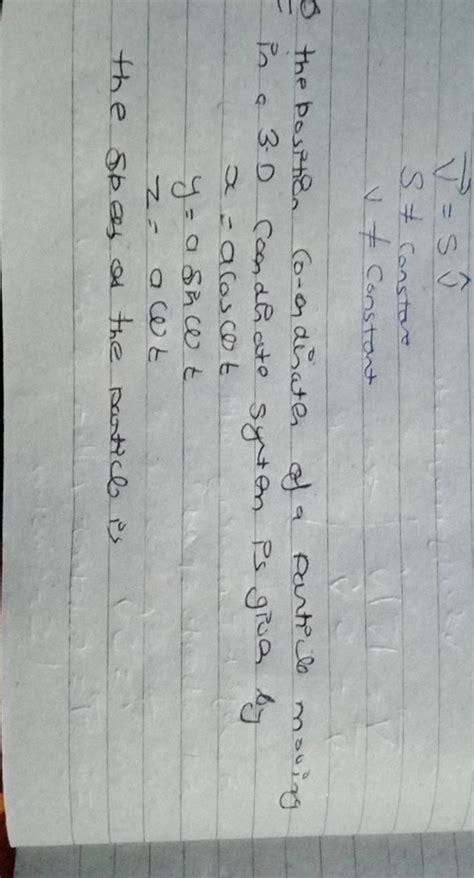 V⃗ = S V̂
S ≠ Constant
V ≠ Constant
the position co-ordinates of a particle moving
in a 3-D coordinate system is given by
x = a cos ωt
y = a sin ωt
z = a ωt
the speed of the particle is